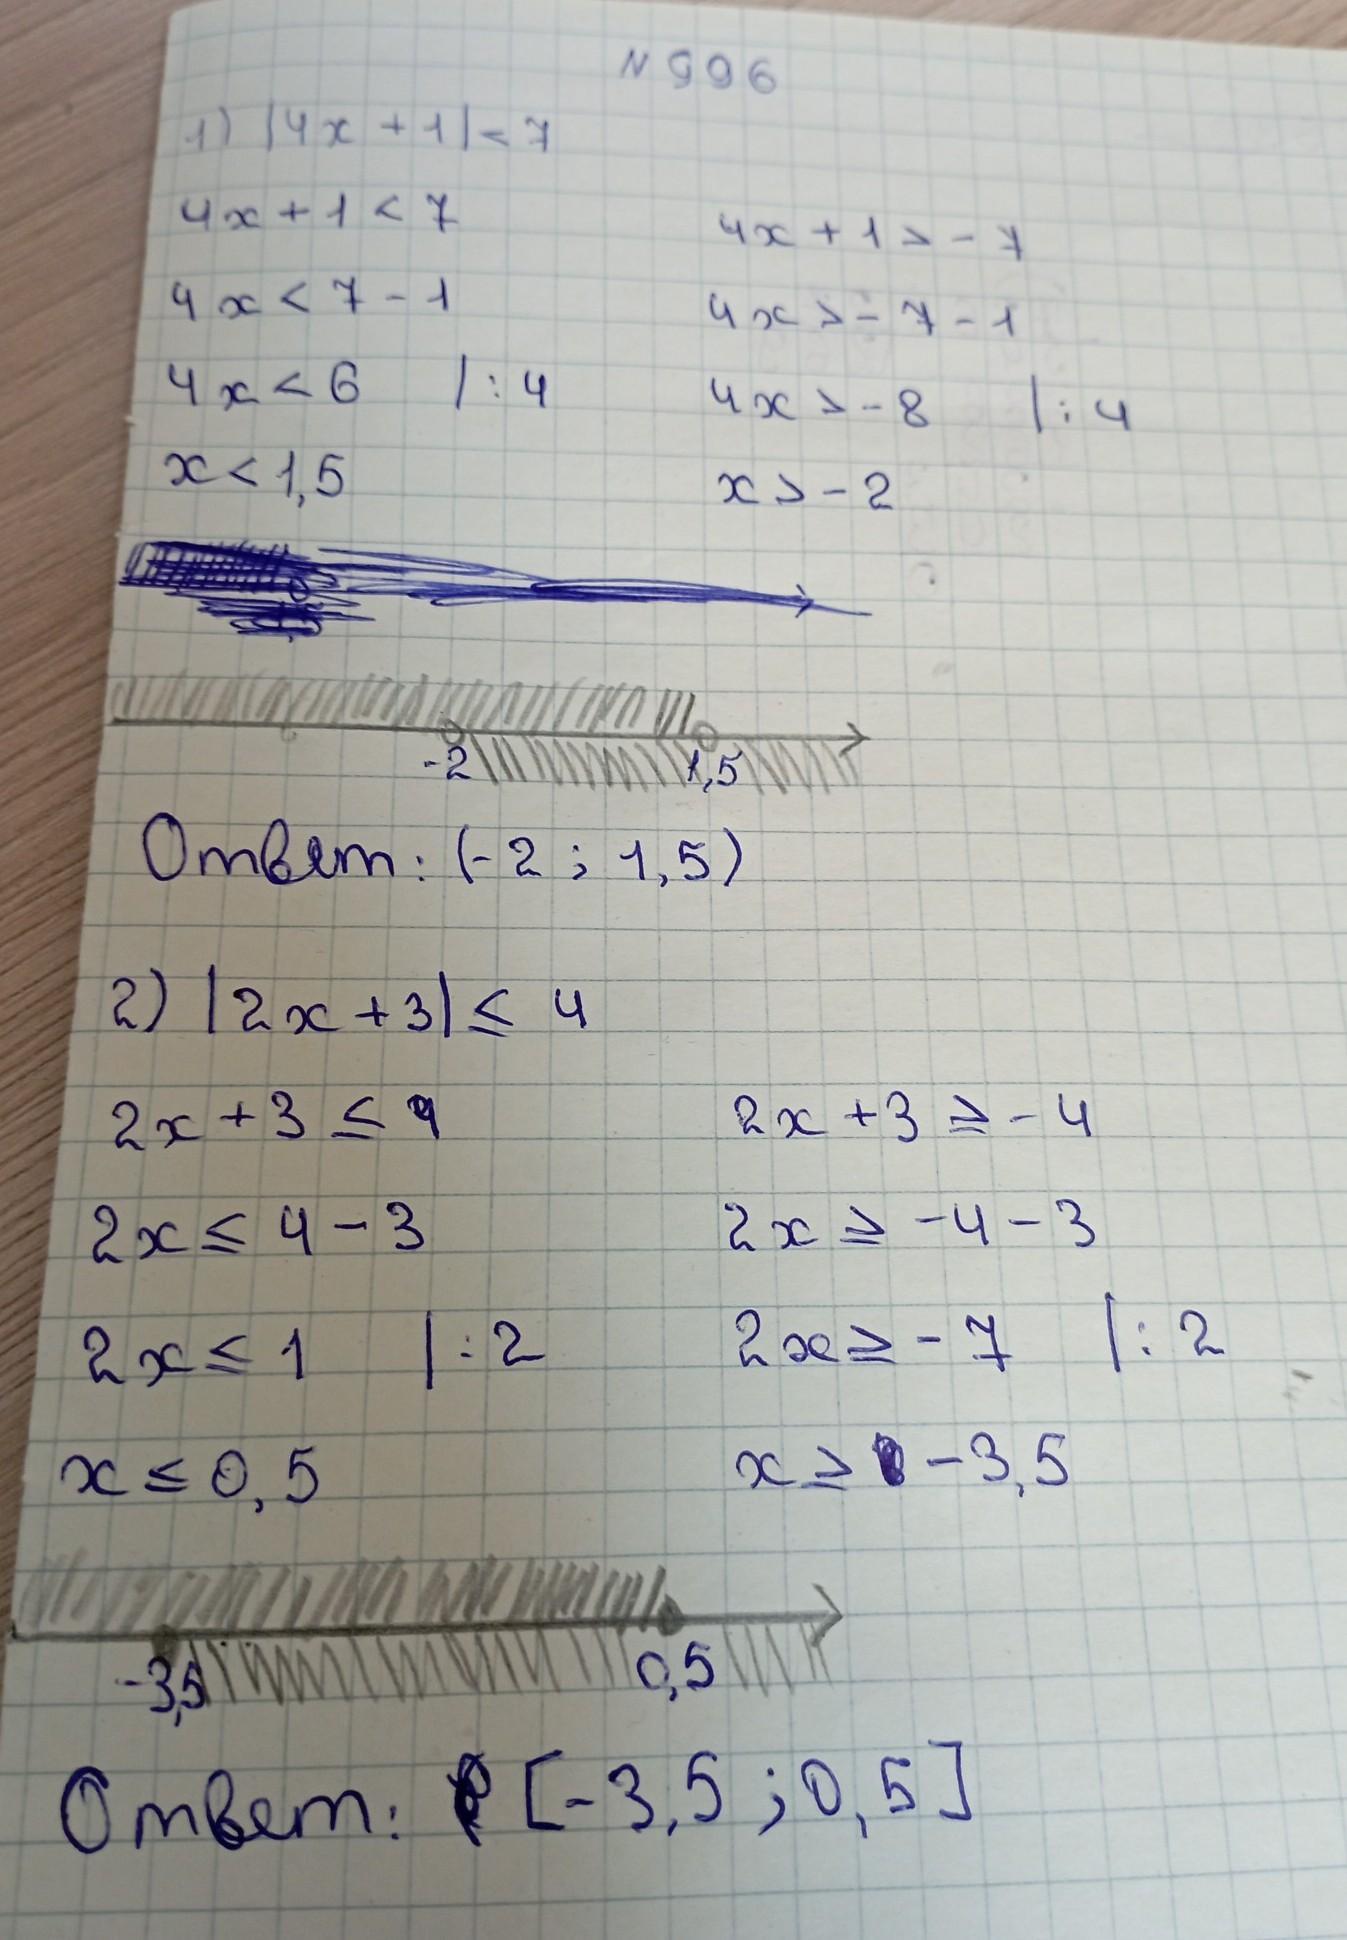 N 996
1) |4x + 1| < 7
4x + 1 < 7 4x + 1 > - 7
4x < 7 - 1 4x > - 7 - 1
4x < 6 | : 4 4x > - 8 | : 4
x < 1,5 x > - 2
-2 1,5
Ответ: (-2 ; 1,5)
2) |2x + 3| ≤ 4
2x + 3 ≤ 4 2x + 3 ≥ - 4
2x ≤ 4 - 3 2x ≥ -4 - 3
2x ≤ 1 | : 2 2x ≥ - 7 | : 2
x ≤ 0,5 x ≥ - 3,5
-3,5 0,5
Ответ: [-3,5 ; 0,5]